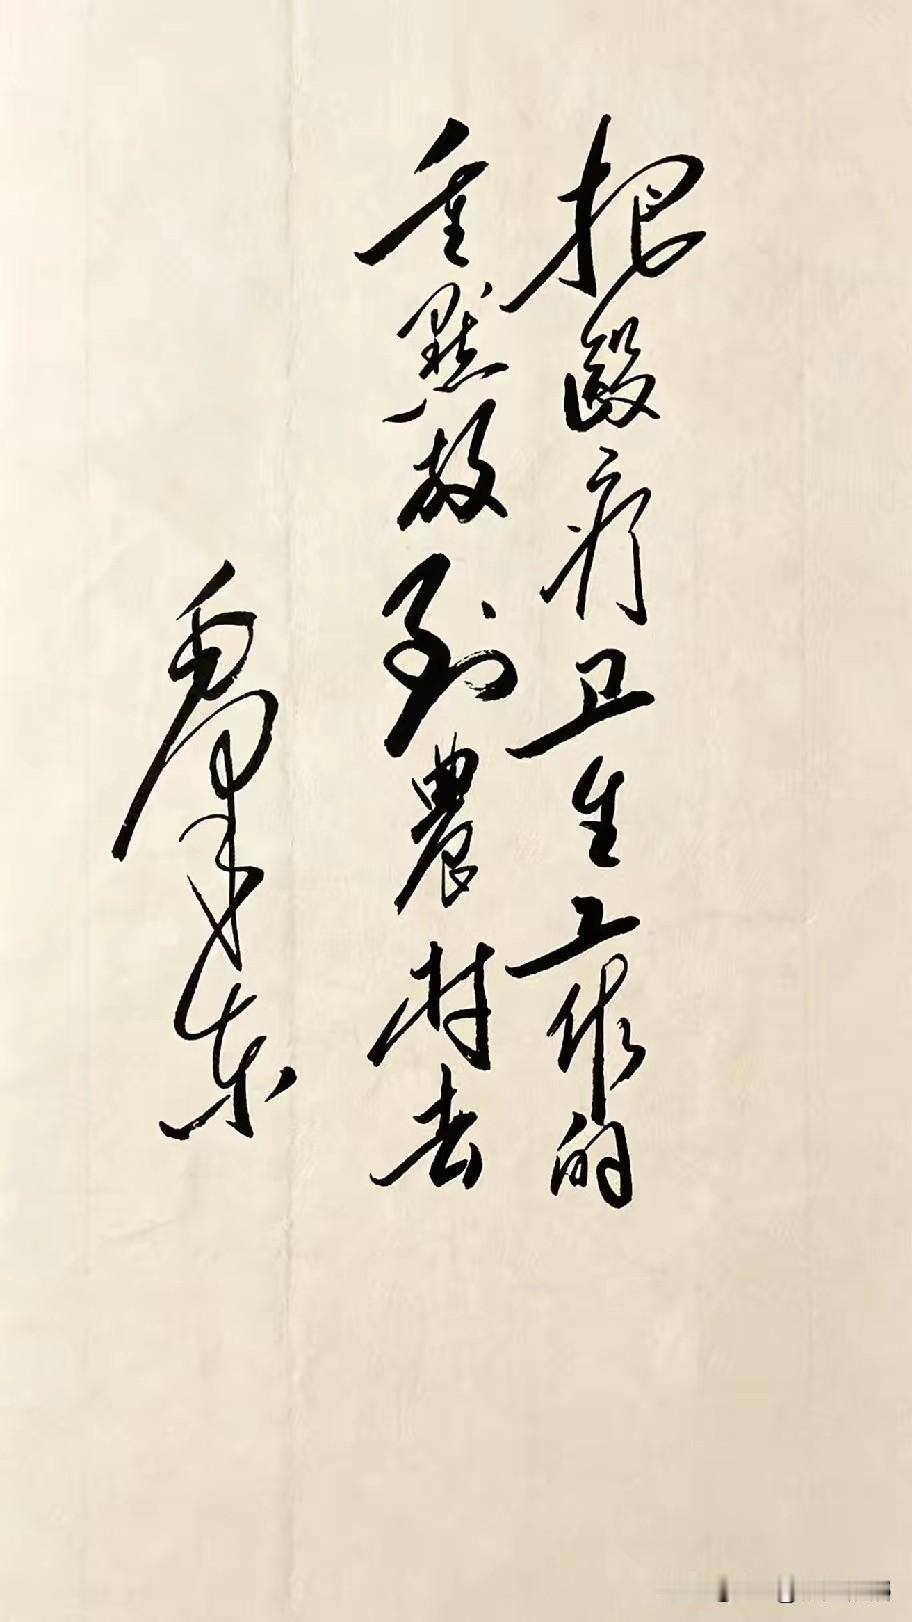 把醫疗卫生工作的
重點放到農村去
毛泽东